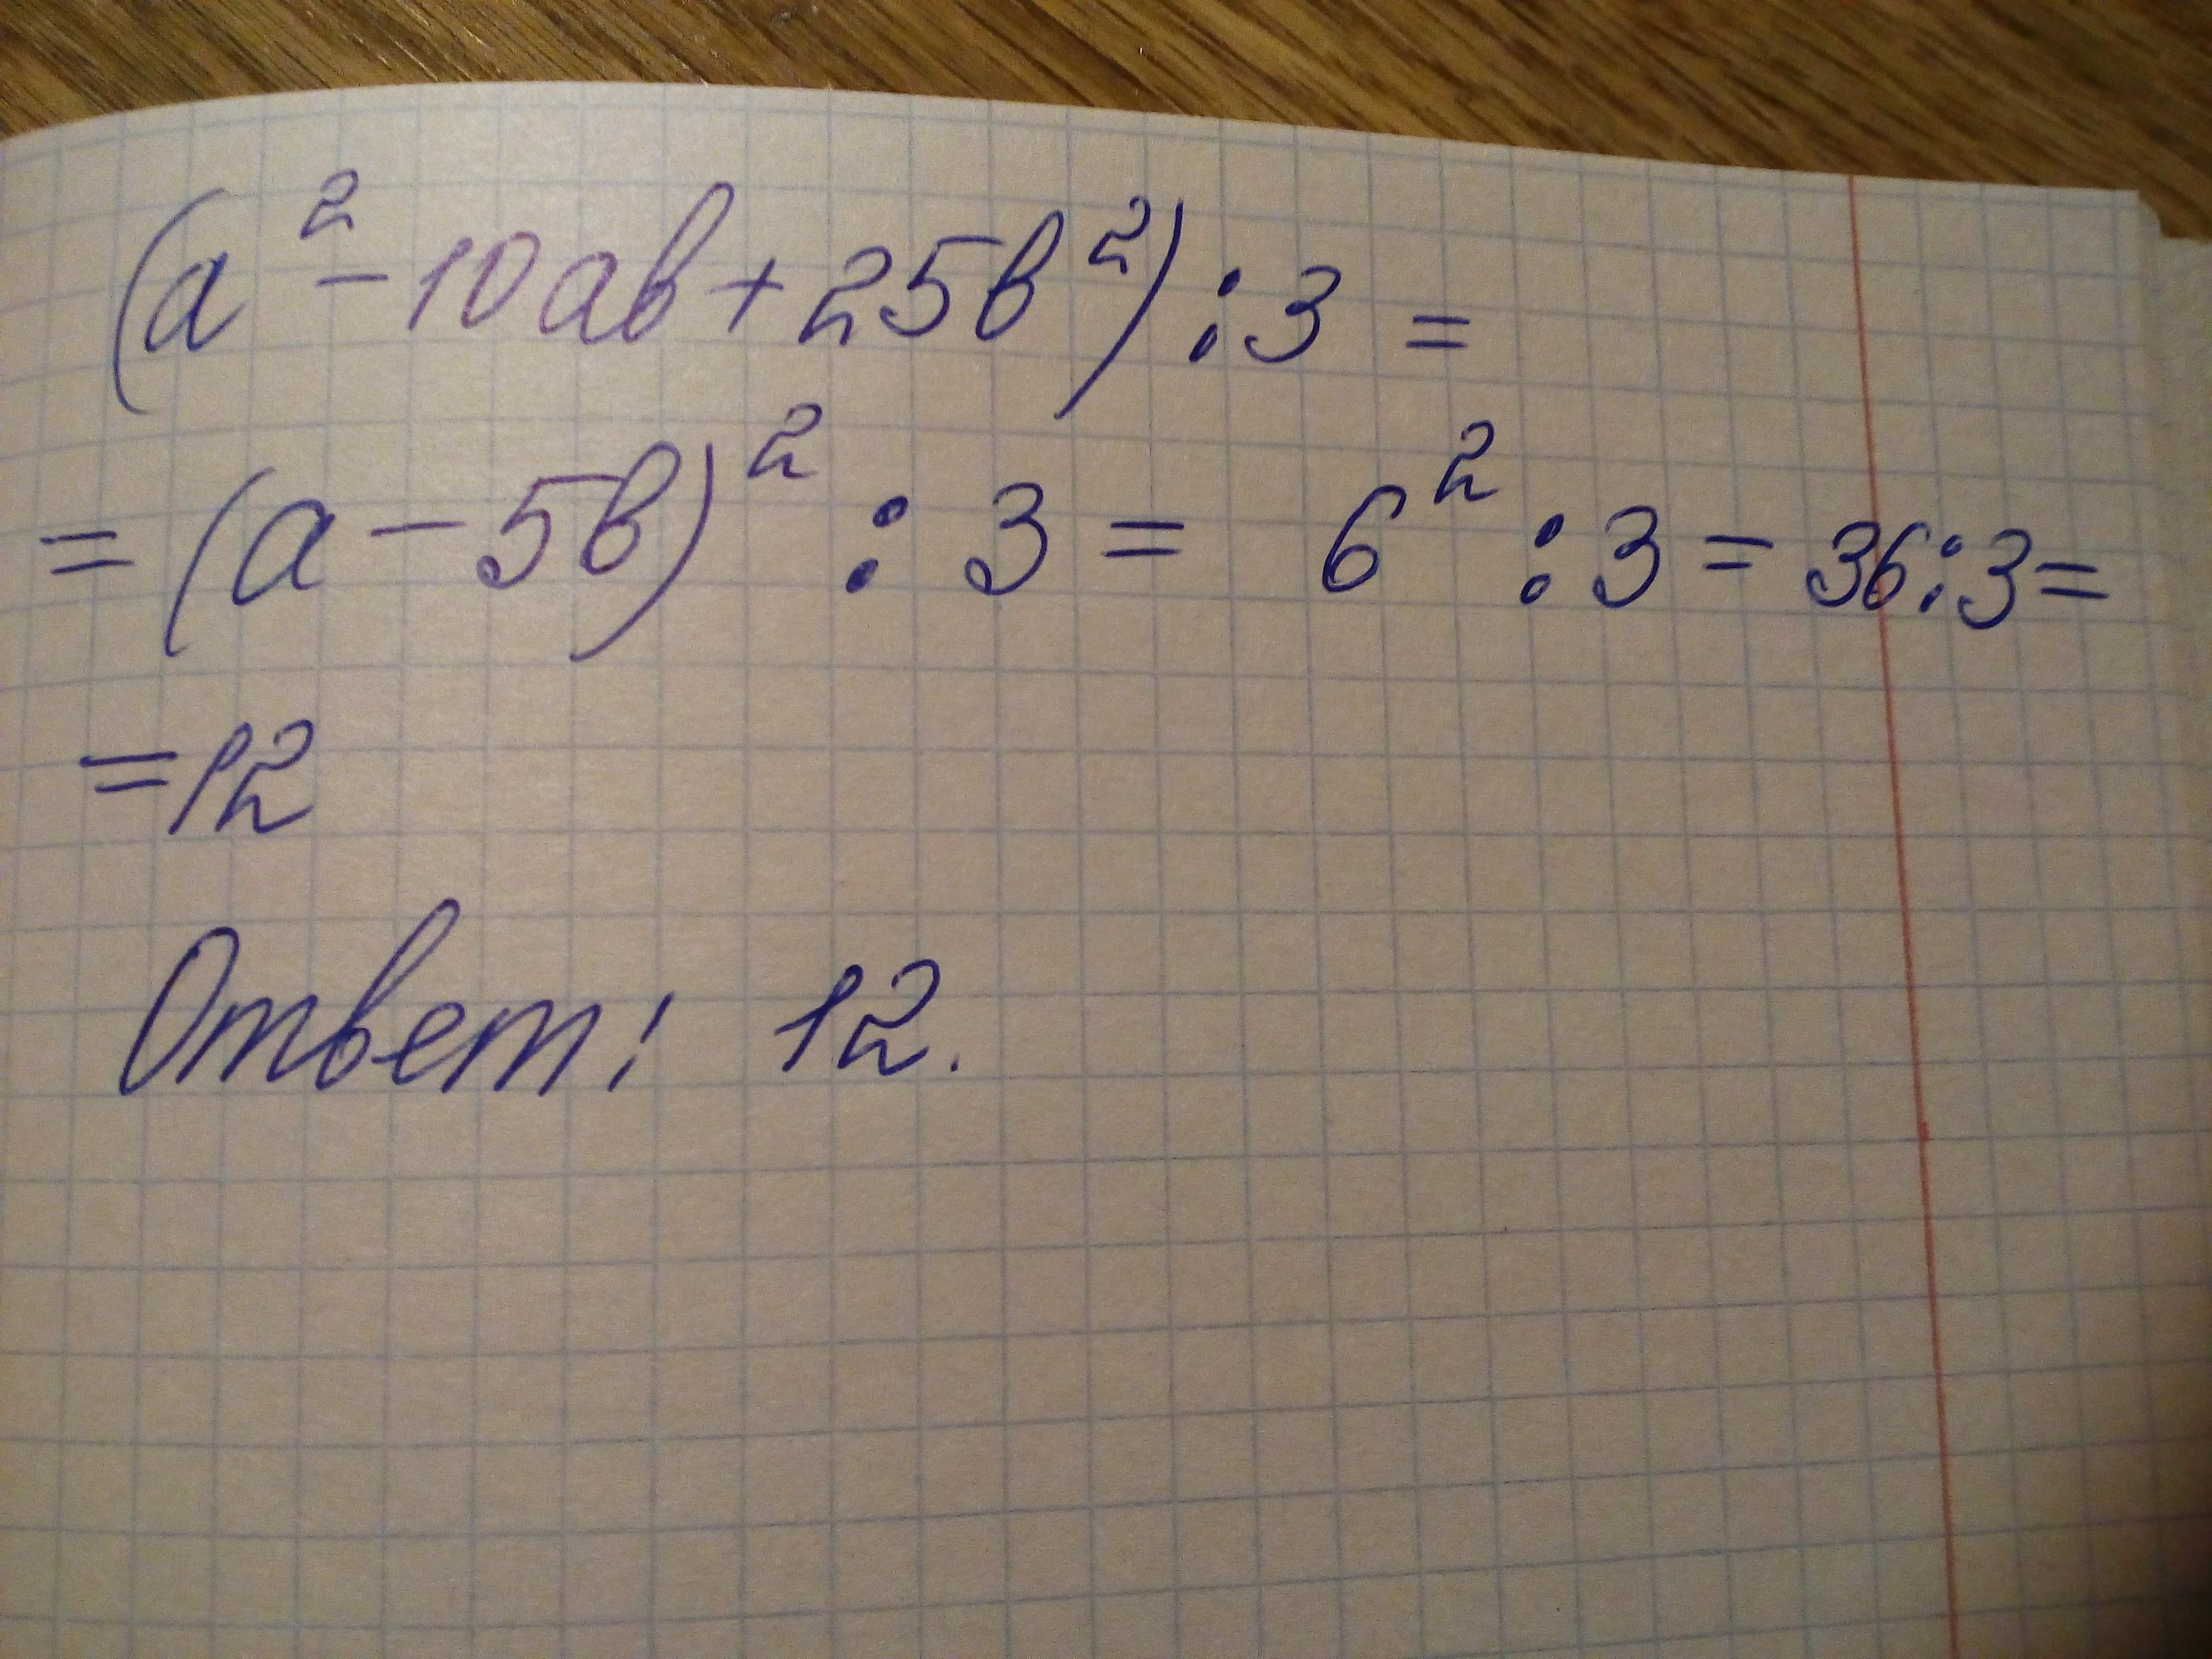 (a² - 10ab + 25b²) : 3 =
= (a - 5b)² : 3 = 6² : 3 = 36 : 3 =
= 12
Ответ: 12.